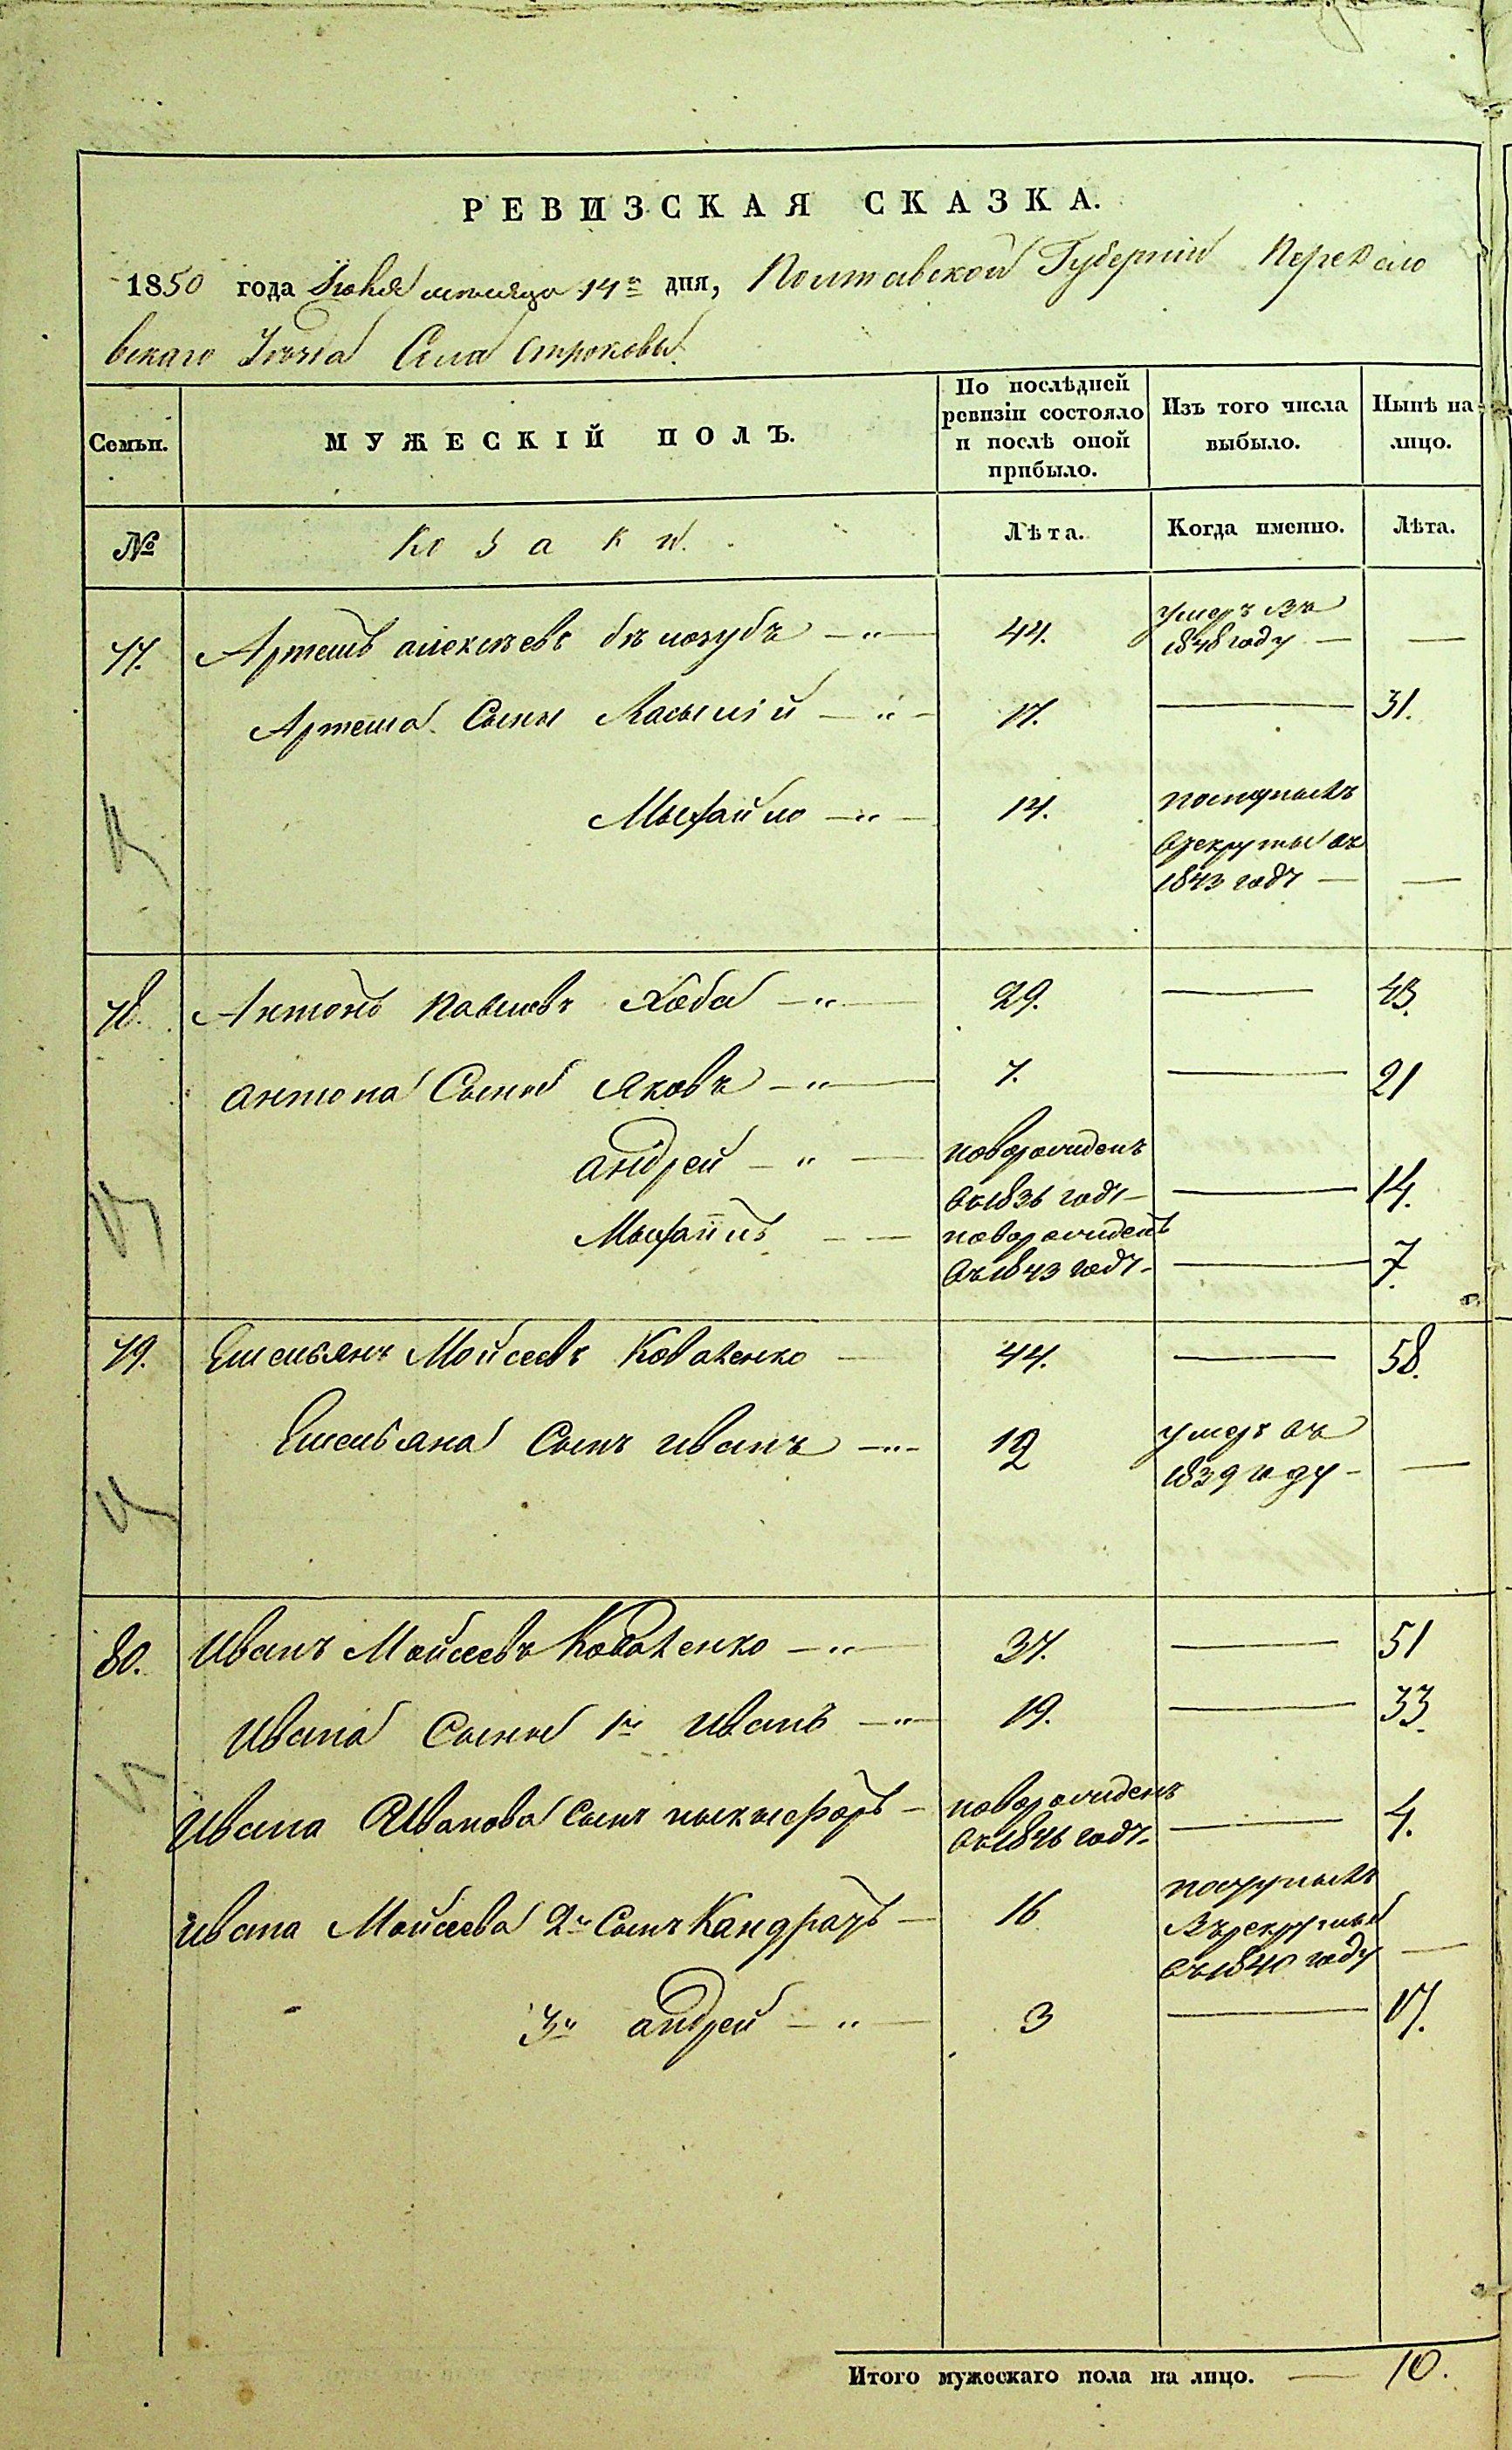 РЕВИЗСКАЯ СКАЗКА.
1850 года Июня месяца 14го дня, Полтавской Губернии Переясло
вскаго Уезда Села Строковы
Семьи.
МУЖЕСКІЙ ПОЛЪ.
По послѣдней ревизіи состояло и послѣ оной прибыло.
Изъ того числа выбыло.
Нынѣ на лицо.
№
Козаки.
Лѣта.
Когда именно.
Лѣта.
77. Артемъ алексѣевъ бѣлозубъ — „ — 44. умеръ въ 1848 году — —
Артема Сыны Васылій — „ — 17. — 31.
Мыхайло — „ — 14. поступилъ
врекруты въ
1843 годѣ — —
78. Антонъ павловъ Хоба — „ — 29. — 43.
антона Сыны яковъ — „ — 7. — 21
андрей — „ — новорожденъ
въ 1836 годѣ — — 14.
Мыхаилъ — — новорожденъ
въ 1843 годѣ — — 7.
79. Емельянъ Мойсеевъ Коваленко — 44. — 58.
Емельяна Сынъ иванъ — „ — 12 умеръ въ
1839 году — —
80. Иванъ Мойсеевъ Коваленко — „ — 37. — 51
Ивана Сыны 1й Иванъ — „ — 19. — 33.
Ивана Иванова Сынъ ныкыфоръ — новорожденъ
въ 1846 годѣ — — 4.
Ивана Мойсеева 2й Сынъ Кандратъ — 16 поступилъ
въ рекруты
въ 1840 году —
3й андрей — „ — 3 — 17.
Итого мужескаго пола на лицо. — 10.